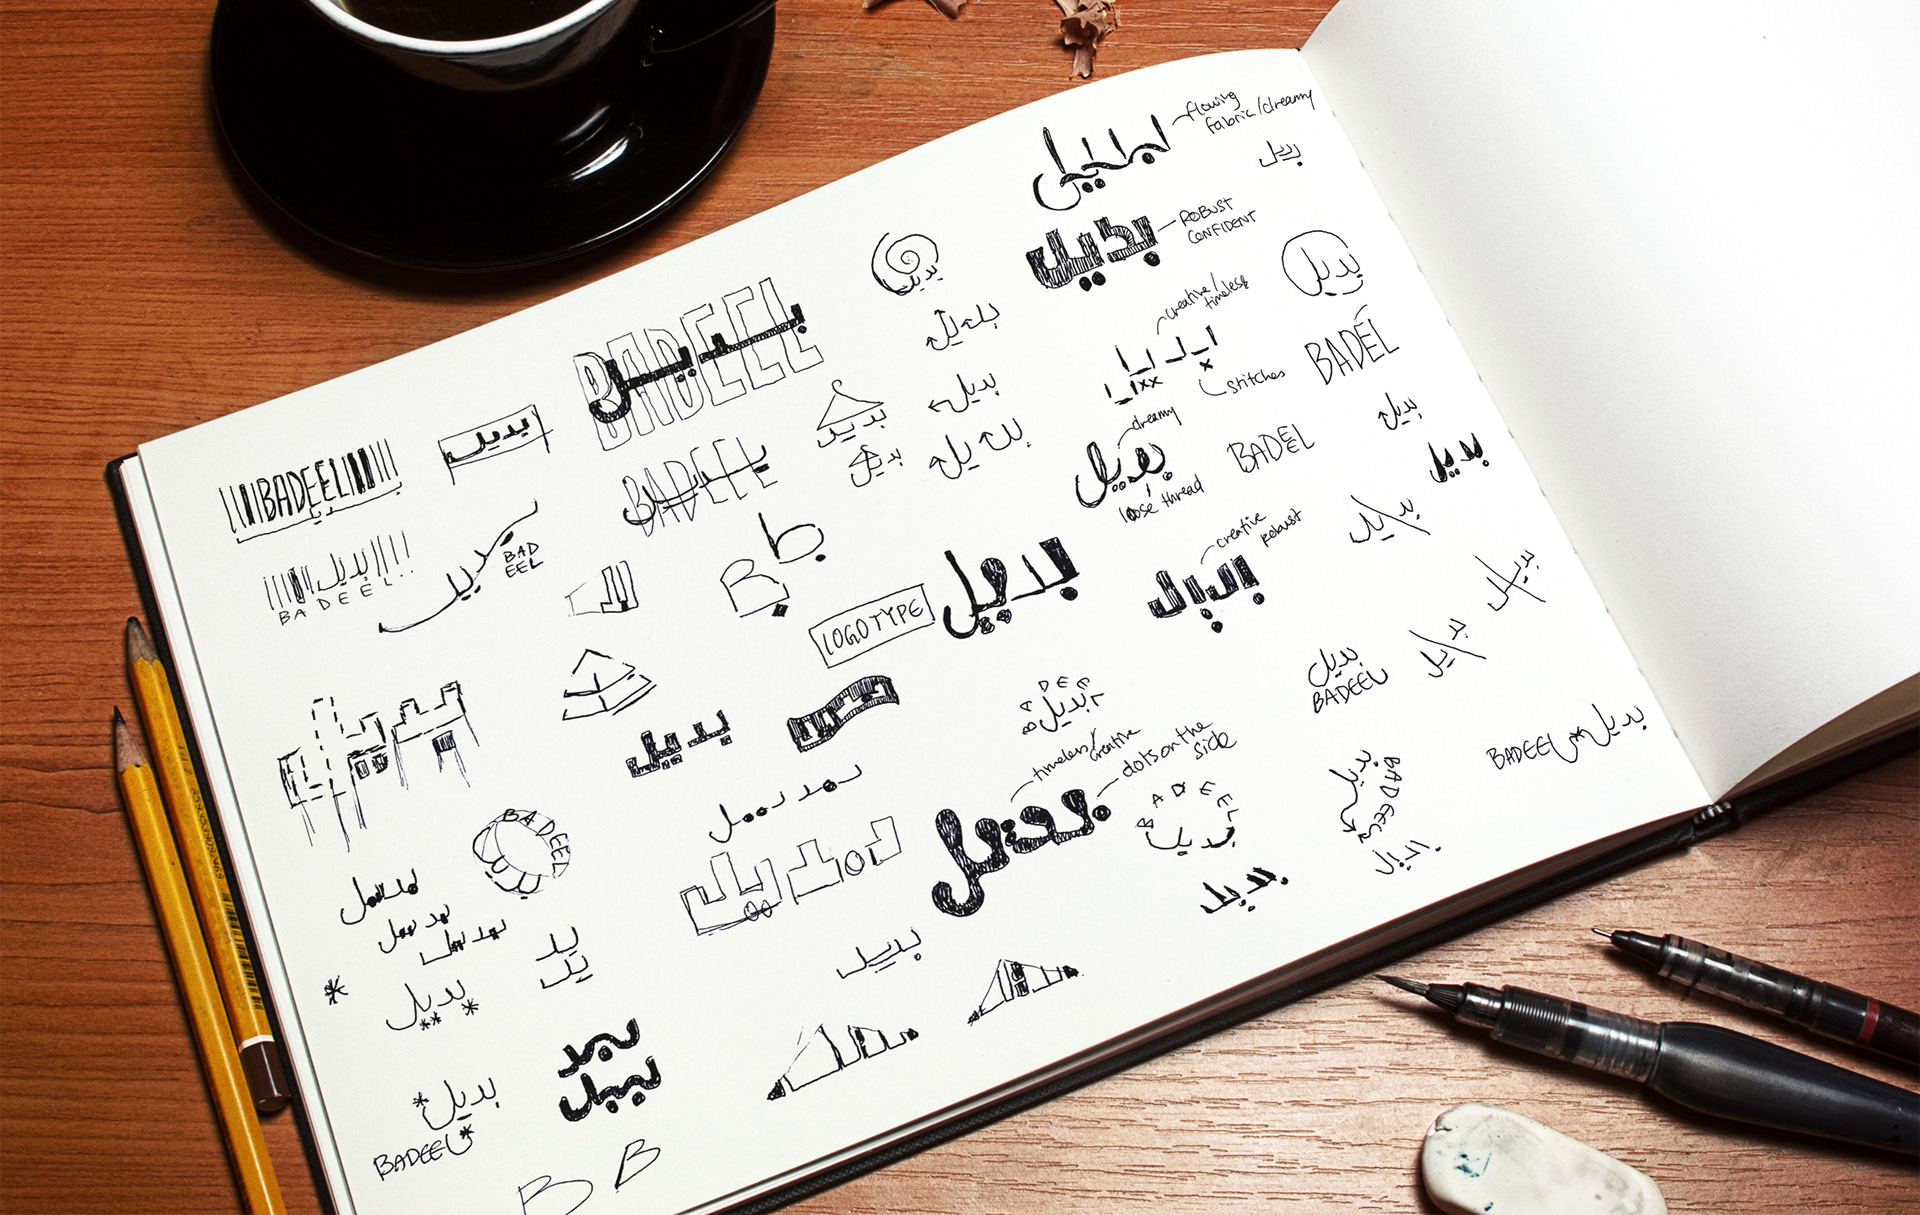 flowing
fabric/dreamy
بديل
بديل
بديل
ROBUST
CONFIDENT
بديل
بديل
creative/
timeless
stitches
BADEL
بديل
BADEEL
بديل
بديل
بديل
بديل
بديل
بديل
dreamy
بديل
loose thread
BADEEL
بديل
بديل
BADEEL
بديل
بديل
BADEEL
بديل
BADEEL
بديل
بديل
BAD
EEL
B
ب
LOGOTYPE
بديل
creative
robust
بديل
بديل
بديل
بديل
بديل
BADEEL
بديل
بديل
BADEEL
timeless/
creative
dots on the
side
بديل
BADEEL
بديل
بديل
BADEEL
بديل
بديل
BADEEL
بديل
بديل
بديل
بديل
بد
يل
بديل
بديل
بد
يل
بديل
BADEEL
B
B